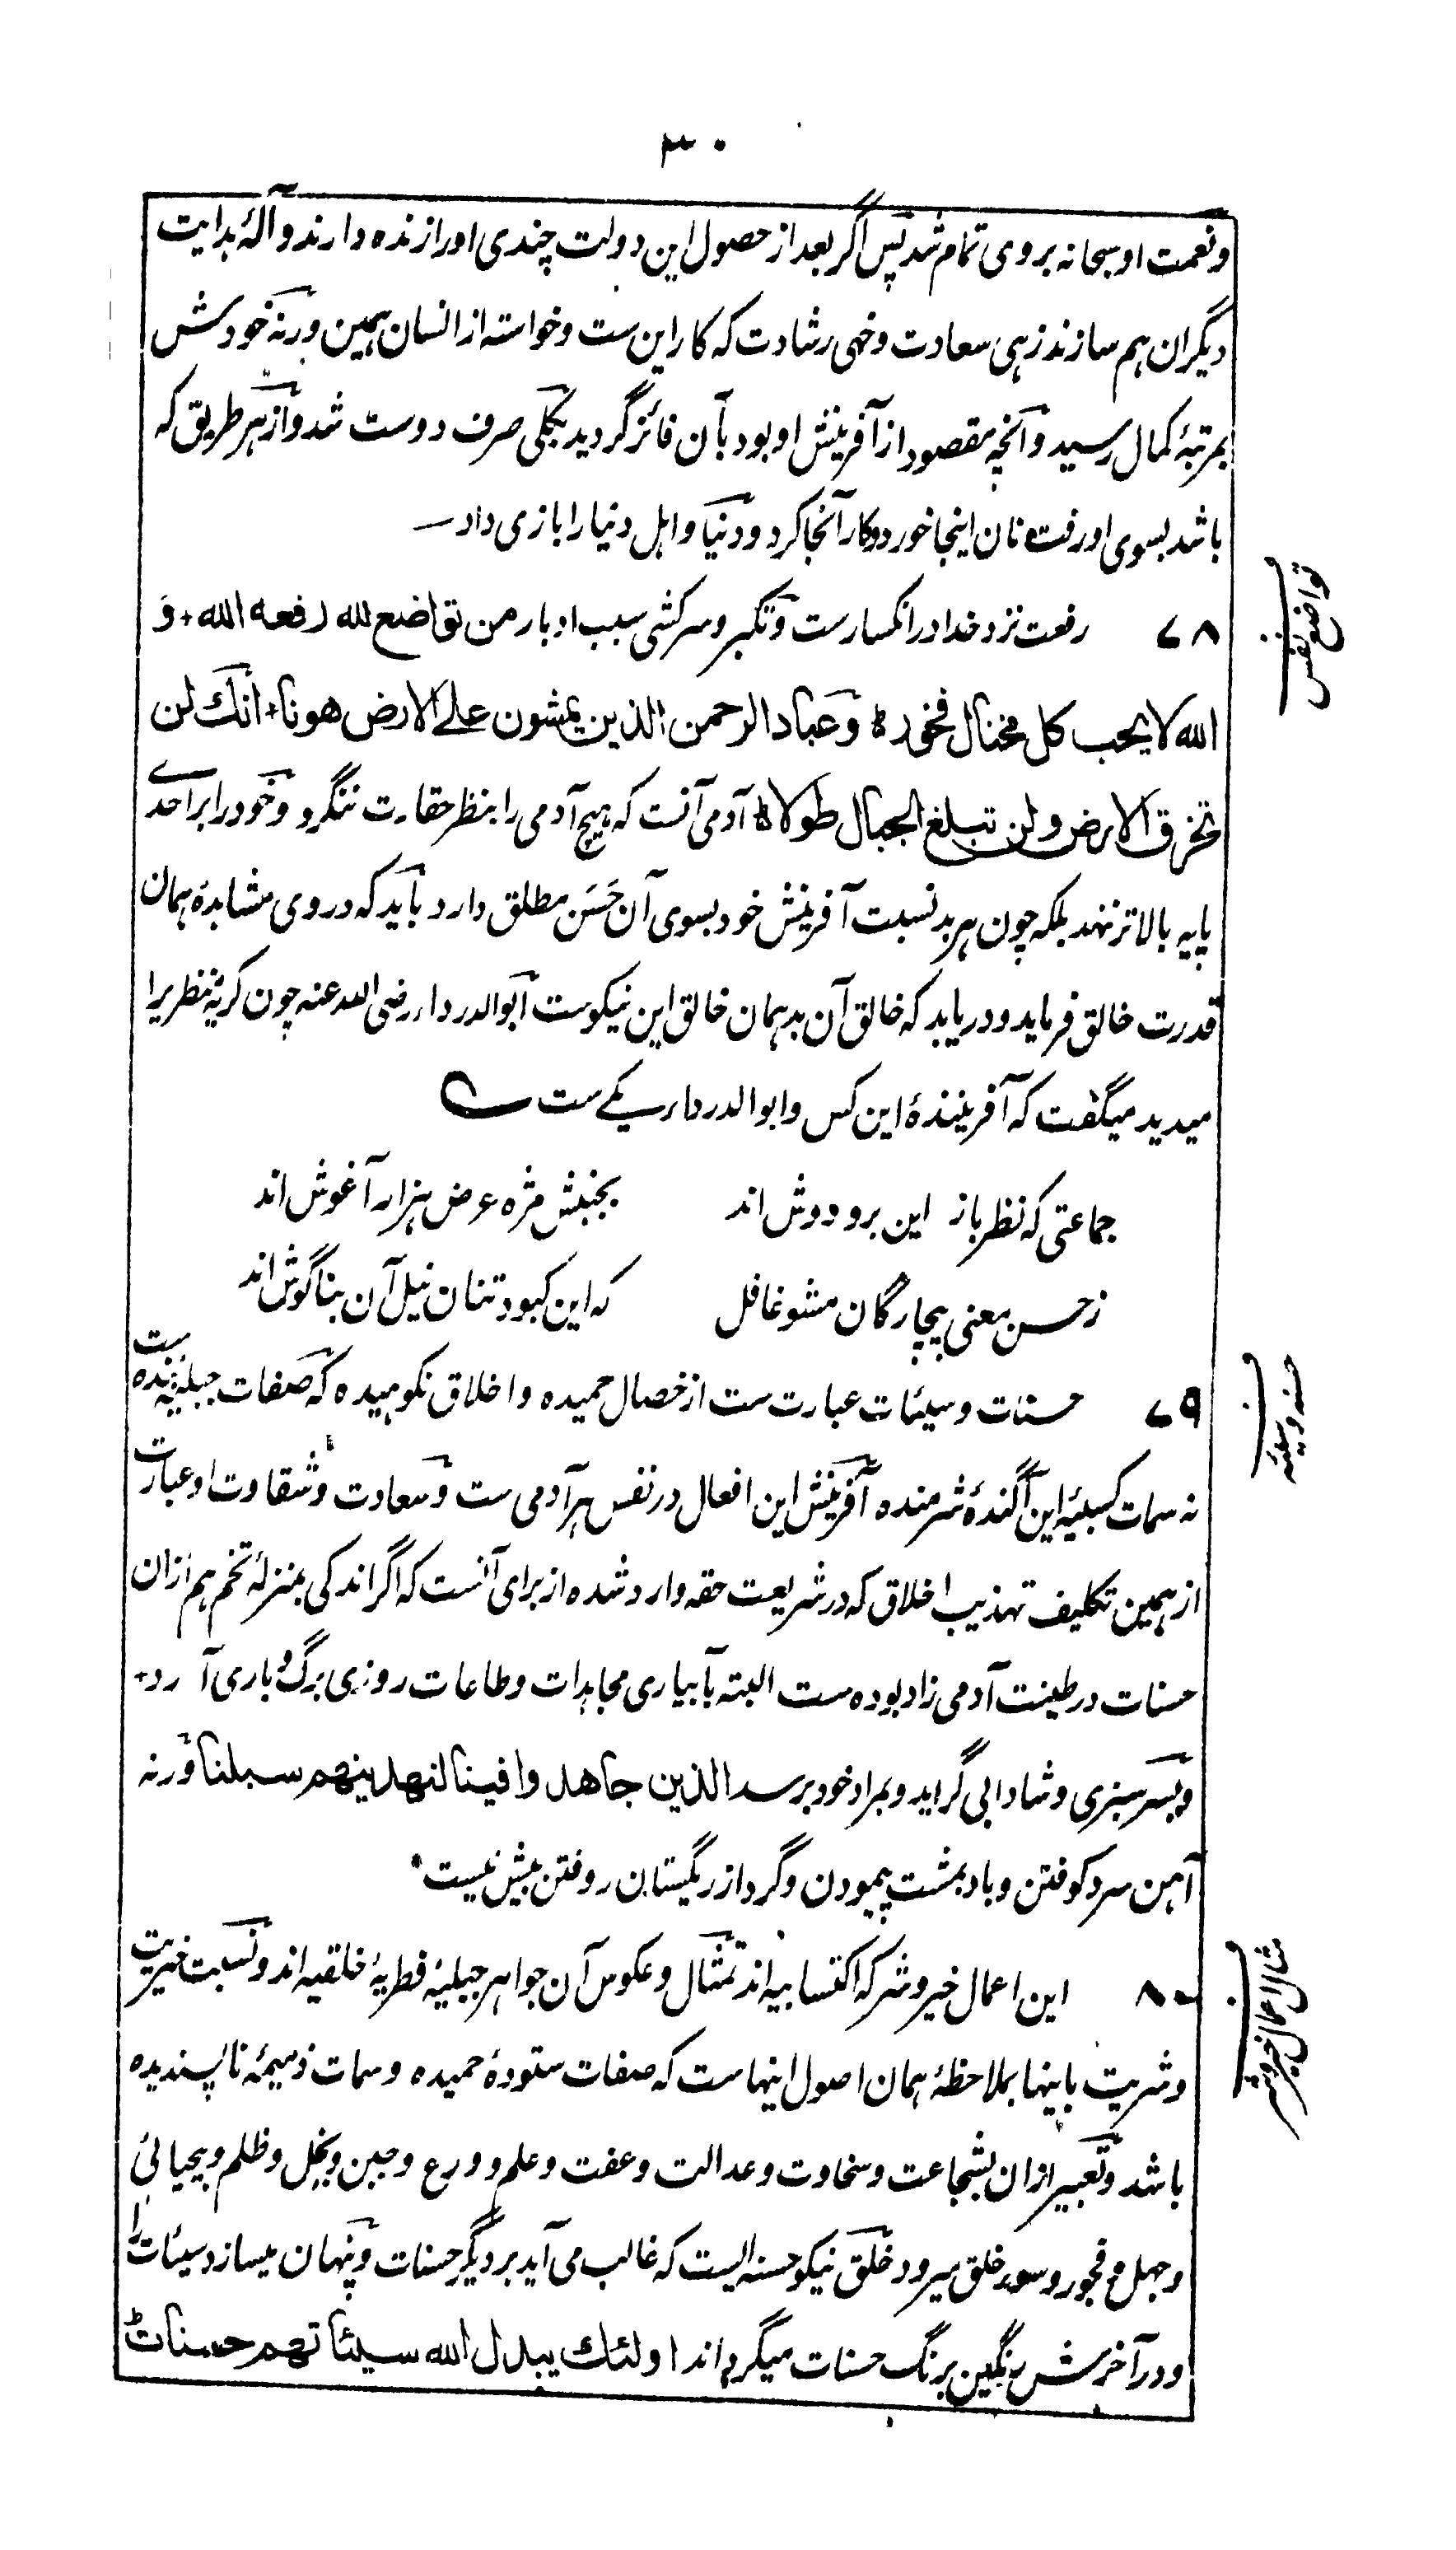 ۳۰
ونعمت او سبحانه بروی تمام شد پس اگر بعد از حصول این دولت چندی اورا زنده دارند و آلهٔ هدایت
دیگران هم سازند زهی سعادت وخهی رشادت که کار این ست وخواسته از انسان همین ورنه خودش
بمرتبهٔ کمال رسید و آنچه مقصود از آفرینش او بود بآن فائز گردید بکلی صرف دوست شد و از هر طریق که
باشد بسوی او رفت نان اینجا خورد وکار آنجا کرد ودنیا واهل دنیا را بازی داد
۷۸ رفعت نزد خدا در انکسارست وتکبر وسرکشی سبب ادبار من تواضع لله رفعه الله + و
الله لا یحب کل مختال فخور ه وعباد الرحمن الذین یمشون علی الارض هونا + انک لن
تخرق الارض ولن تبلغ الجبال طولا ه آدمی آنست که هیچ آدمی را بنظر حقارت ننگرد وخود را بر احدے
پایه بالاتر ننهد بلکه چون هر بد نسبت آفرینش خود بسوی آن حَسَن مطلق دارد باید که در وی مشاهدهٔ همان
قدرت خالق فرماید ودریابد که خالق آن بد همان خالق این نیکوست ابوالدرداء رضی الله عنه چون کریه منظریرا
میدید میگفت که آفرینندهٔ این کس وابوالدرداء یکے ست
جماعتی که نظر باز این برو دوش اند بجنبش مژه عرض هزار آغوش اند
زحسن معنی بیچارگان مشو غافل که این کبود تنان نیل آن بناگوش اند
۷۹ حسنات وسیئات عبارت ست از خصال حمیده واخلاق نکوهیده که صفات جبلیهٔ بنده ست
نه سمات کسبیهٔ این آگندهٔ شرمنده آفرینش این افعال در نفس هر آدمی ست وسعادت وشقاوت او عبارت
از همین تکلیف تهذیب اخلاق که در شریعت حقه وارد شده از برای آنست که اگر اندکی بمنزلهٔ تخم هم ازان
حسنات در طینت آدمی زاد بوده ست البته بآبیاری مجاهدات وطاعات روزی برگ وباری آرد +
وبسر سبزی وشادابی گراید وبمراد خود برسد الذین جاهدوا فینا لنهدینهم سبلنا ورنه
آهن سرد کوفتن وباد بمشت پیمودن وگرد از ریگستان روفتن بیش نیست
۸۰ این اعمال خیر وشر که اکتسابیه اند تمثال وعکوس آن جواهر جبلیهٔ فطریهٔ خلقیه اند ونسبت خیریت
وشریت باینها بملاحظهٔ همان اصول اینهاست که صفات ستودهٔ حمیده وسمات ذمیمهٔ ناپسندیده
باشد وتعبیر ازان بشجاعت وسخاوت وعدالت وعفت وعلم وورع وجبن وبخل وظلم وبیحیائی
وجهل وفجور وسوء خلق میرود خلق نیکو حسنه ایست که غالب می آید بر دیگر حسنات وپنهان میسازد سیئات را
ودر آخرش رنگین برنگ حسنات میگرداند اولئک یبدل الله سیئاتهم حسنات
تواضع نفس
حسنه وسیئه
مثال اعمال خیر وشر